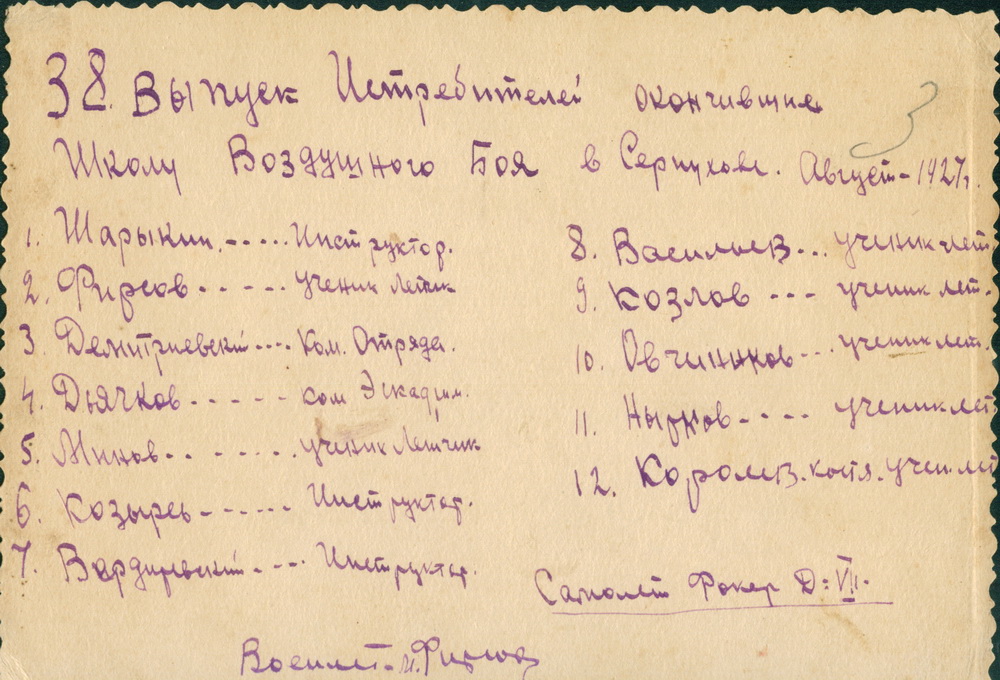 38 Выпуск Истребителей окончившие
3
Школу Воздушного Боя в Серпухове. Август-1927г.
1. Шарыкин.-....Инструктор.
2. Фирсов - - - - - ученик Летчик
3. Демитриевский.... Ком. Отряда.
4. Дьячков - - - - - ком Эскадрил.
5. Минов.. - - - - - ученик Летчик
6. Козырев - - - - - - Инструктор.
7. Вардировский - - - - Инструктор.
8. Васильев... ученик лет
9. Козлов --- ученик лет.
10. Овчинников... ученик лет.
11. Нырков - - - - ученик лет
12. Королев. костя. учен. лет
Самолет Фокер Д: VII.
Военлет-и.Фирсов